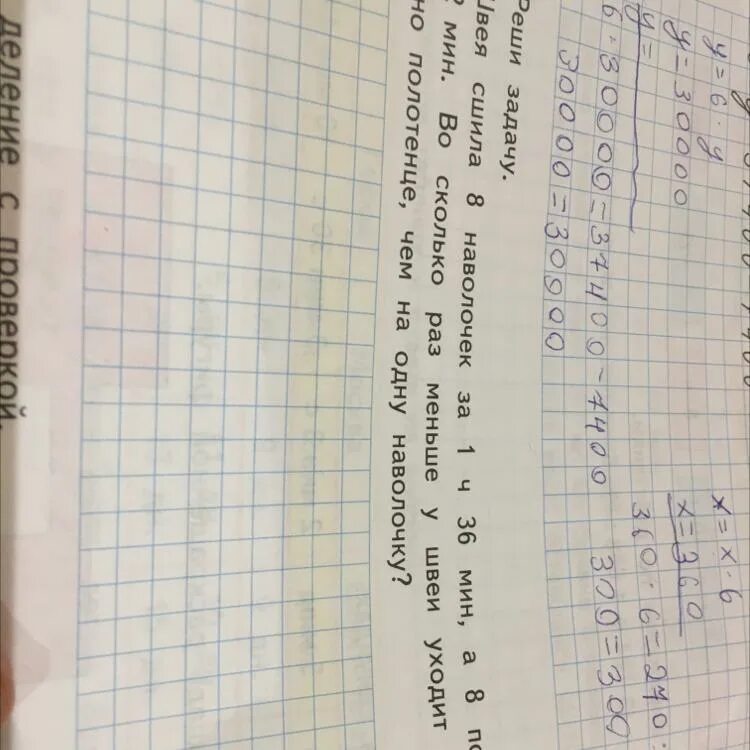 y = 6 · y
y = 30000
y =
6 · 30000 = 37400 - 7400
30000 = 30000
x = x · 6
x = 360
360 · 6 = 270 ·
300 = 300
Реши задачу.
Швея сшила 8 наволочек за 1 ч 36 мин, а 8 по
2 мин. Во сколько раз меньше у швеи уходит
но полотенце, чем на одну наволочку?
деление с проверкой.